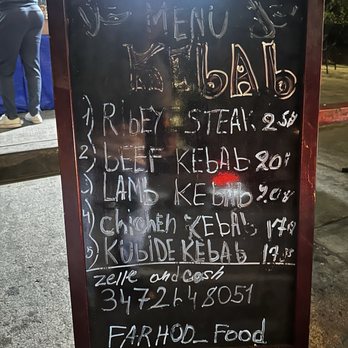 MENU
KEbAb
1) RibEY STEAK 25$
2) bEEF KEbAb 20$
3) LAMb KEbAb 20$
4) Chichen KEbAb 17$
5) KUbIDE KEbAb 17$
zelle and cash
3472648051
FARHOD_Food